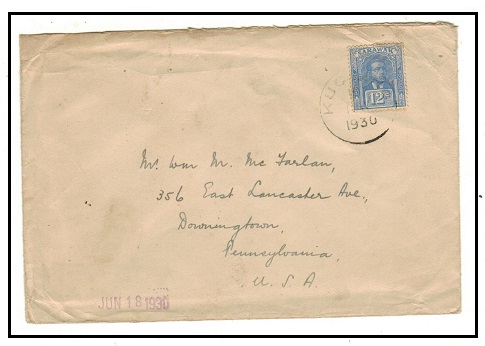 SARAWAK
12
1930
Mr. Wm M. Mc Farlan,
356 East Lancaster Ave.,
Downingtown,
Pennsylvania,
U. S. A.
JUN 18 1930